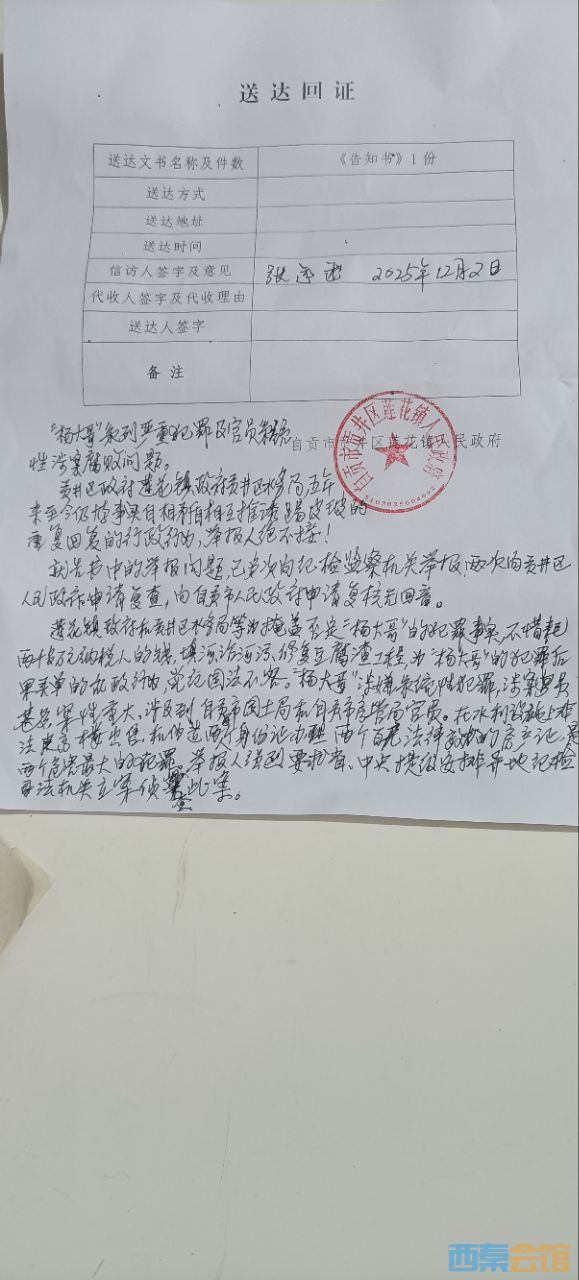 送达回证
送达文书名称及件数 《告知书》1份
送达方式
送达地址
送达时间
信访人签字及意见 张 2025年12月2日
代收人签字及代收理由
送达人签字
备注
自贡市贡井区莲花镇人民政府
自贡市贡井区莲花镇人民政府
"杨大哥"系列严重犯罪及官员系统
性涉案腐败问题。
贡井区政府莲花镇政府贡井区水务局五年
来至今仍按事实自相矛盾相互推诿踢皮球的
重复回复的行政行为,举报人绝不接!
报告书中的举报问题,已多次向纪检监察机关举报,两次向贡井区
人民政府申请复查,向自贡市人民政府申请复核无回音。
莲花镇政府和贡井区水务局等为掩盖否定"杨大哥"的犯罪事实,不惜耗
两百万元纳税人的钱,填河治河污、修复豆腐渣工程,为"杨大哥"的犯罪后
果买单的乱政行为,党纪国法不容。"杨大哥"涉嫌系统性犯罪,涉案
案性重大,涉及到自贡市国土局和自贡市房管局官员。在水利设施上非
法建房 出售,和伪造两个身份证办理两个 无法律效力的房产证,是
两个危害最大的犯罪。举报人强烈要求省、中央提级安排异地纪检
司法机关立案侦查此案。
西秦会馆